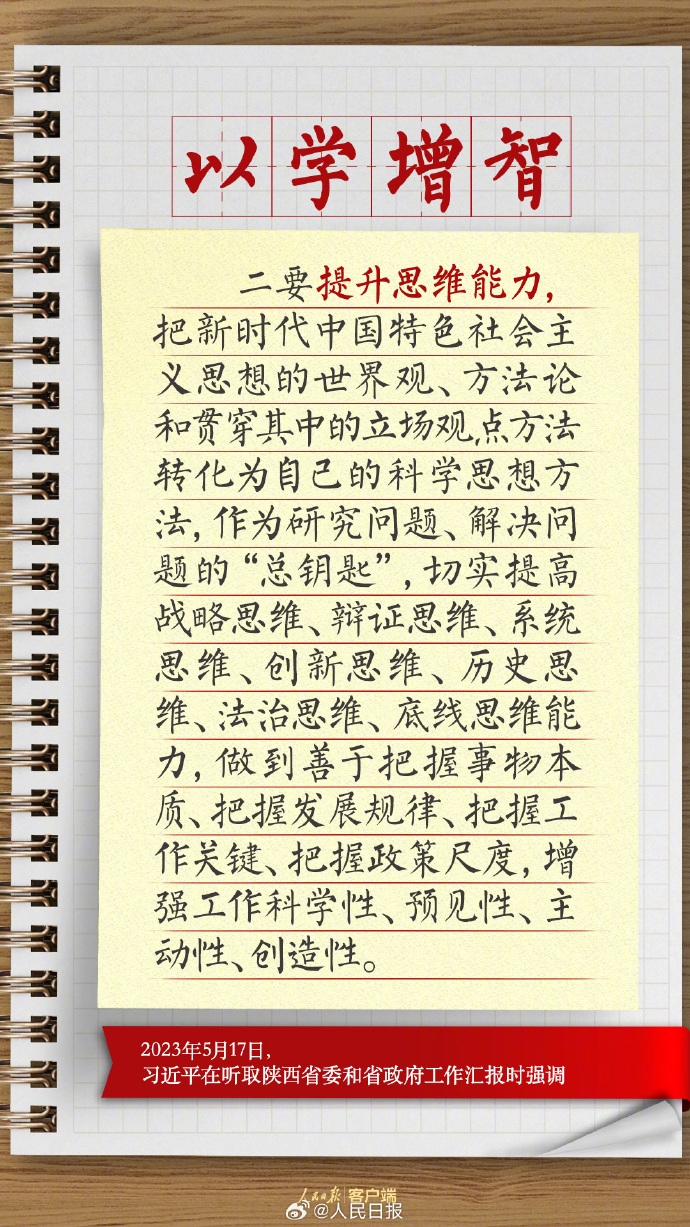 以学增智
二要提升思维能力，
把新时代中国特色社会主
义思想的世界观、方法论
和贯穿其中的立场观点方法
转化为自己的科学思想方
法，作为研究问题、解决问
题的“总钥匙”，切实提高
战略思维、辩证思维、系统
思维、创新思维、历史思
维、法治思维、底线思维能
力，做到善于把握事物本
质、把握发展规律、把握工
作关键、把握政策尺度，增
强工作科学性、预见性、主
动性、创造性。
2023年5月17日，
习近平在听取陕西省委和省政府工作汇报时强调
人民日报 客户端
@人民日报